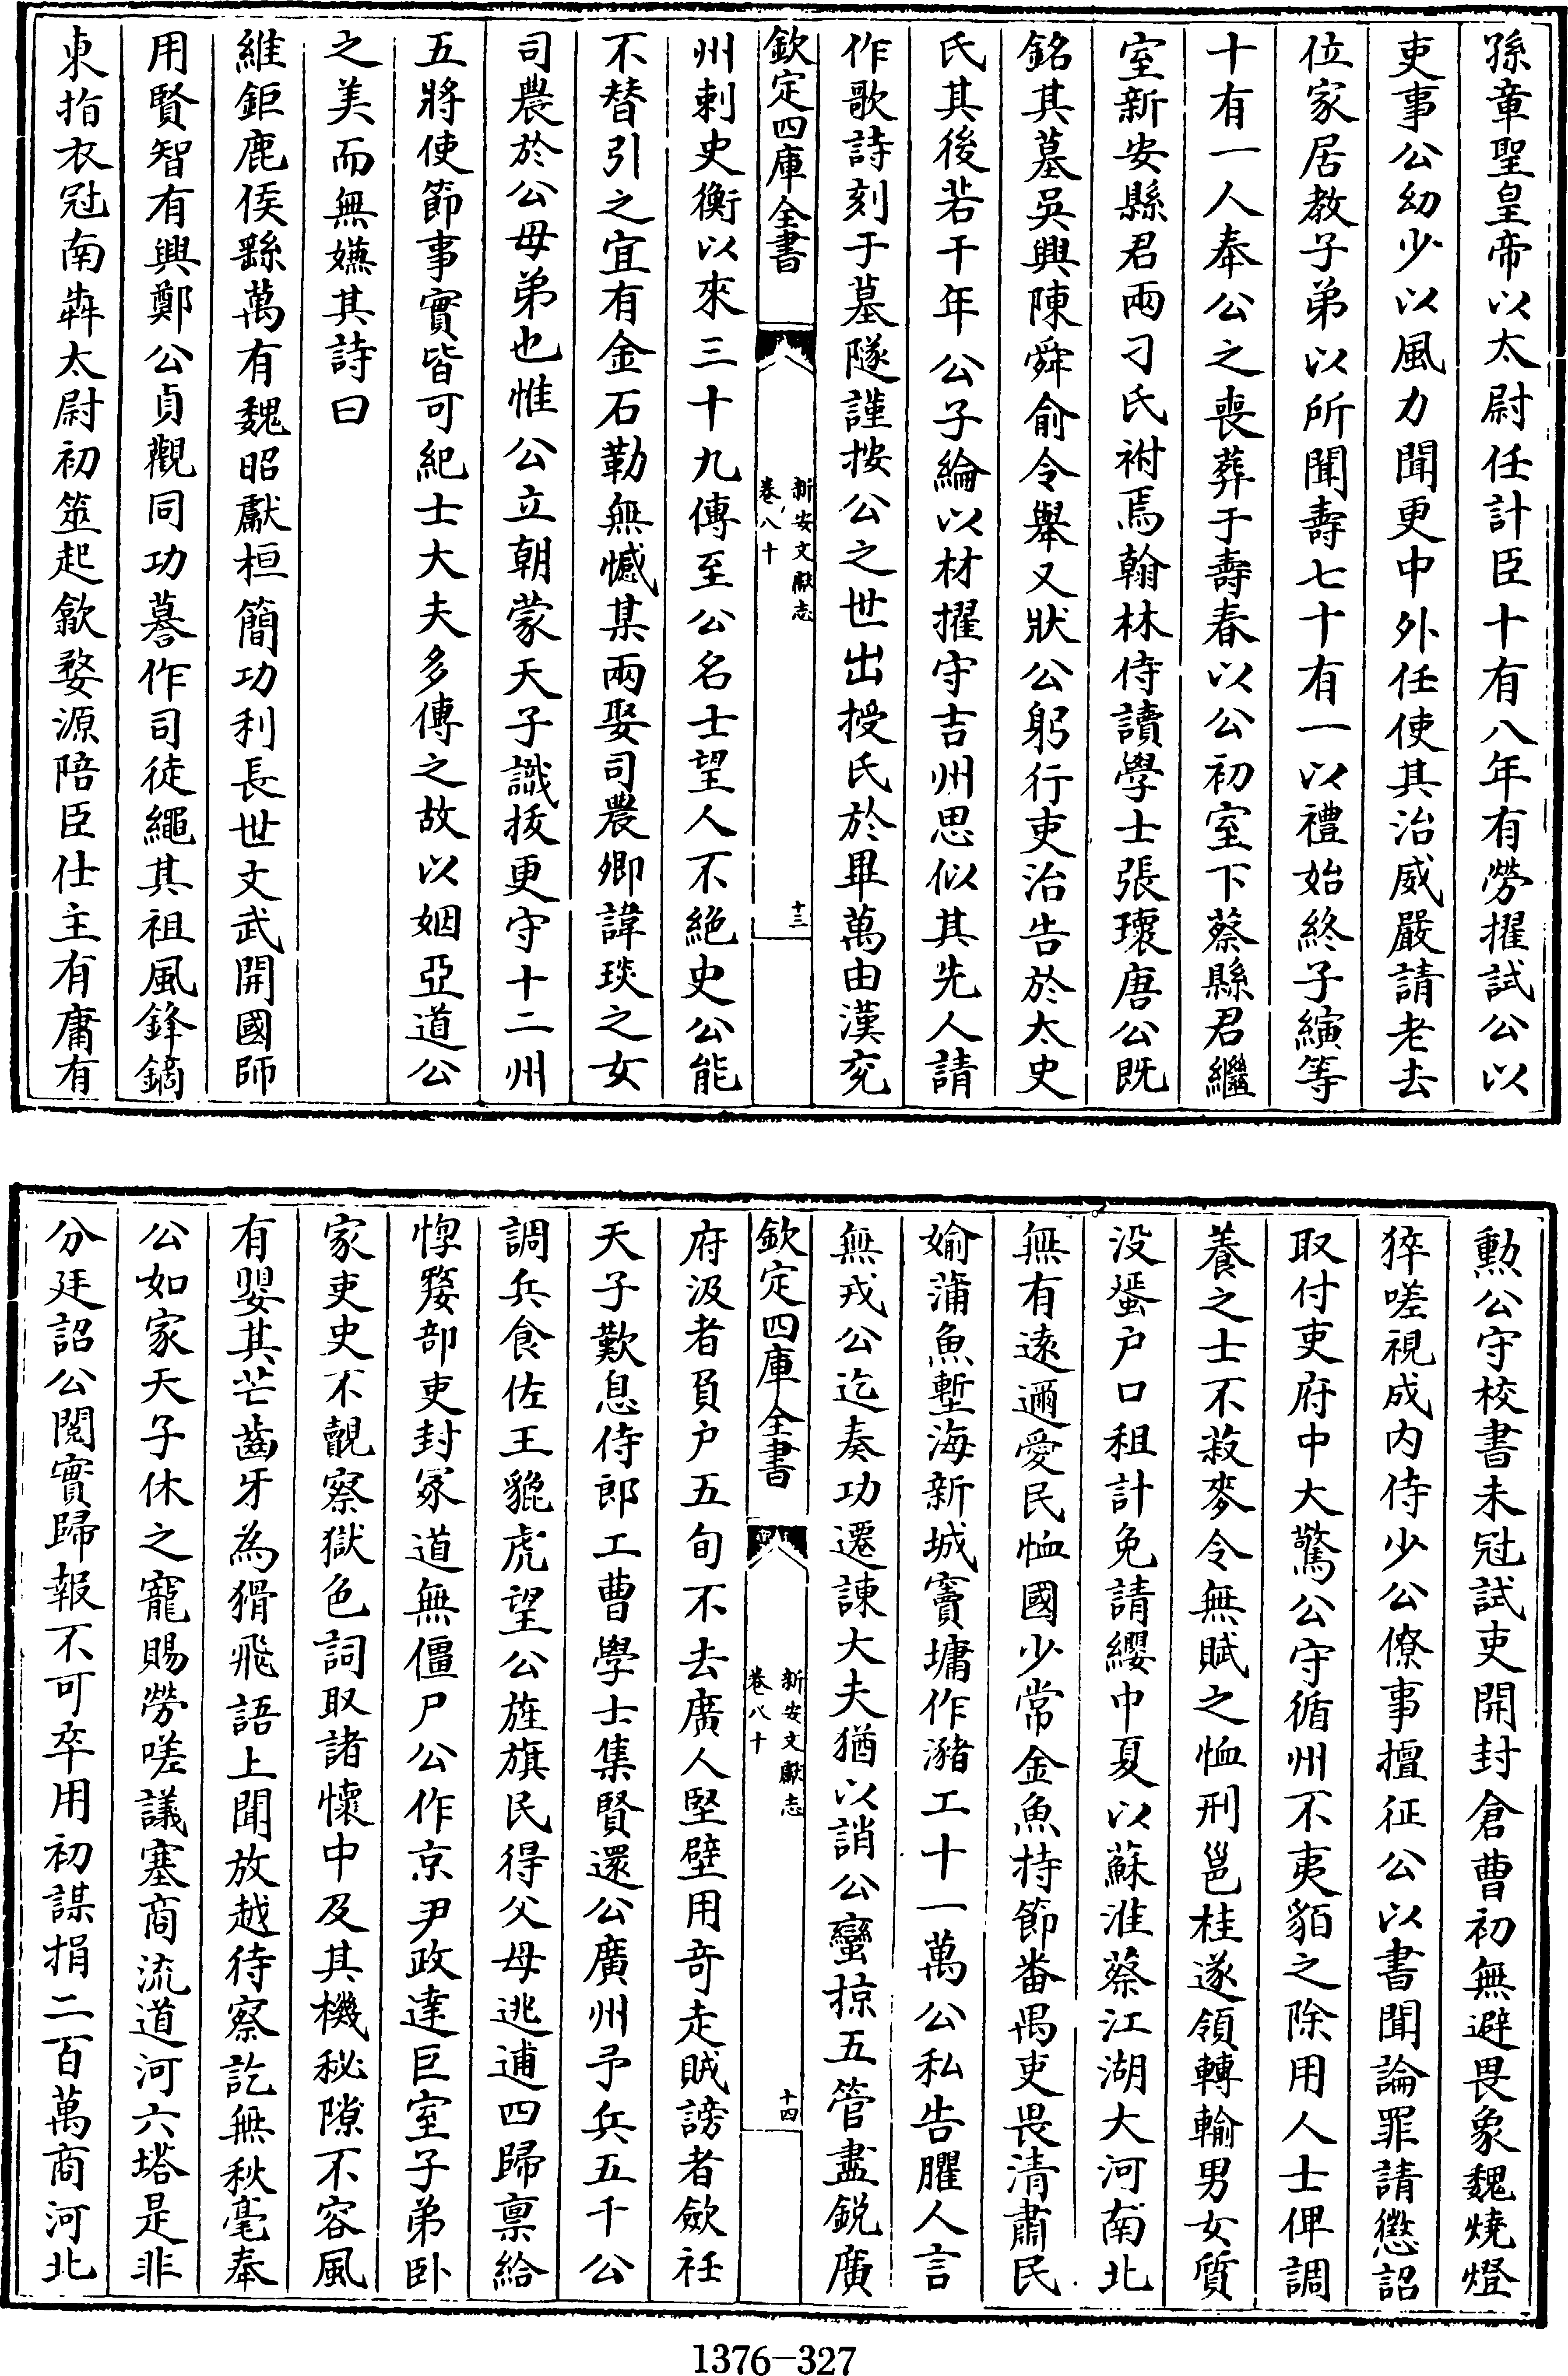 孫章聖皇帝以太尉任計臣十有八年有勞擢試公以
吏事公幼少以風力聞更中外任使其治威嚴請老去
位家居教子弟以所聞壽七十有一以禮始終子縯等
十有一人奉公之喪葬于壽春以公初室下蔡縣君繼
室新安縣君兩刁氏祔焉翰林侍讀學士張瓌唐公既
銘其墓吳興陳舜俞令舉又狀公躬行吏治告於太史
氏其後若干年公子綸以材擢守吉州思似其先人請
作歌詩刻于墓隧謹按公之世出授氏於畢萬由漢兖
欽定四庫全書
新安文獻志
卷八十
十三
州刺史衡以來三十九傳至公名士望人不絶史公能
不替引之宜有金石勒無憾某兩娶司農卿諱琰之女
司農於公母弟也惟公立朝蒙天子識拔更守十二州
五將使節事實皆可紀士大夫多傳之故以姻亞道公
之美而無嫌其詩曰
維鉅鹿侯繇萬有魏昭獻桓簡功利長世文武開國師
用賢智有興鄭公貞觀同功蕃作司徒繩其祖風鋒鏑
東指衣冠南犇太尉初筮起歙婺源陪臣仕主有庸有
勲公守校書未冠試吏開封倉曹初無避畏象魏燒燈
猝嗟視成内侍少公僚事擅征公以書聞論罪請懲詔
取付吏府中大驚公守循州不夷貊之除用人士俾調
養之士不菽麥令無賦之恤刑邕桂遂領轉輸男女質
没蜑户口租計免請纓中夏以蘇淮蔡江湖大河南北
無有逺邇愛民恤國少常金魚持節番禺吏畏清肅民
婾蒲魚塹海新城竇墉作瀦工十一萬公私告臞人言
無戎公迄奏功遷諫大夫猶以誚公蠻掠五管盡鋭廣
欽定四庫全書
新安文獻志
卷八十
十四
府汲者負户五旬不去廣人堅壁用奇走賊謗者歛衽
天子歎息侍郎工曹學士集賢還公廣州予兵五千公
調兵食佐王貔虎望公旌旗民得父母逃逋四歸禀給
惸嫠部吏封冡道無僵尸公作京尹政逹巨室子弟卧
家吏史不覿察獄色詞取諸懷中及其機秘隙不容風
有嬰其芒齒牙為猾飛語上聞放越待察訖無秋毫奉
公如家天子休之寵賜勞嗟議塞商流道河六塔是非
分廷詔公閲實歸報不可卒用初謀捐二百萬商河北
1376-327